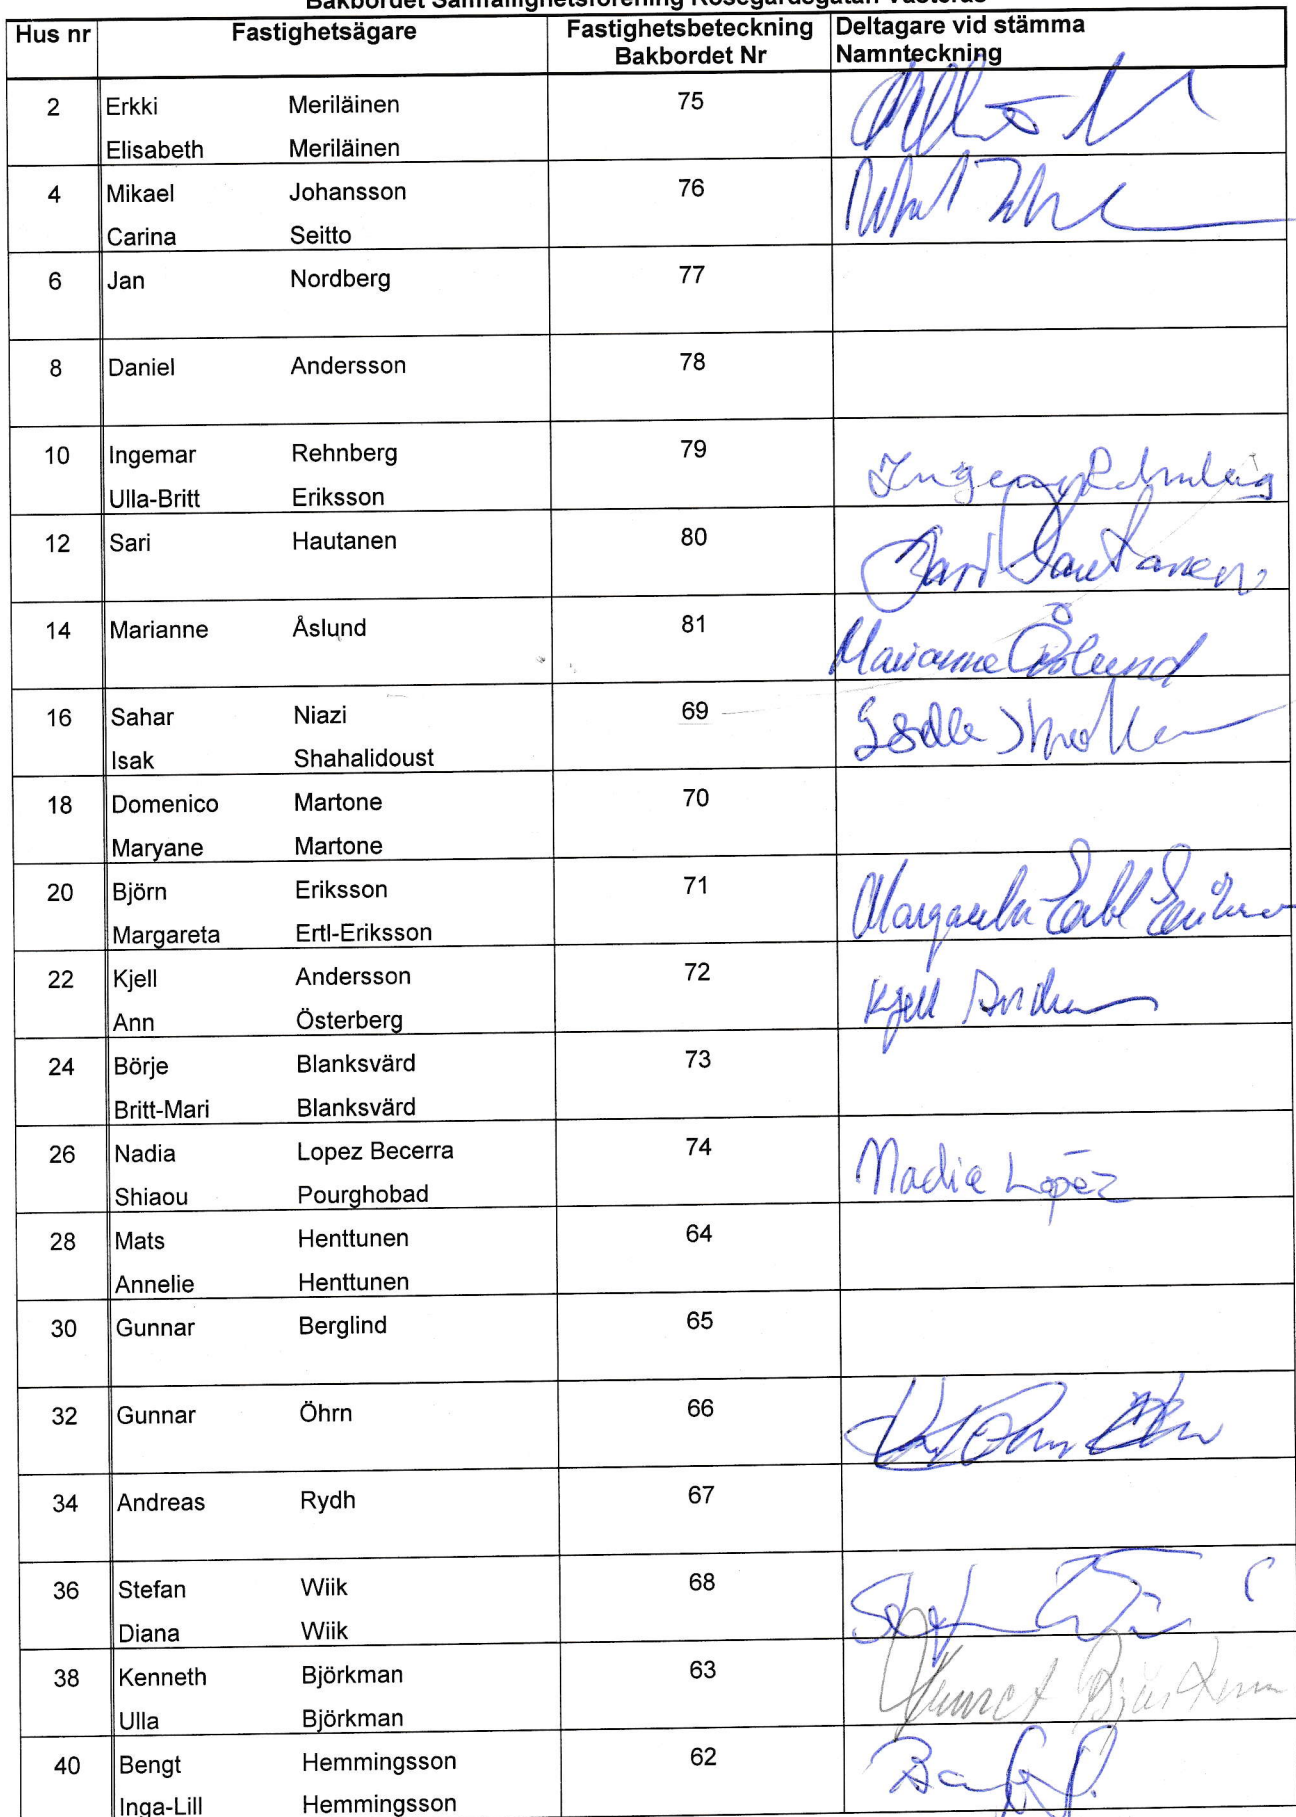 Bakbordet Samfällighetsförening Rosegårdsgatan Västerås
Hus nr Fastighetsägare Fastighetsbeteckning Bakbordet Nr Deltagare vid stämma Namnteckning
2 Erkki Meriläinen 75
Elisabeth Meriläinen
4 Mikael Johansson 76
Carina Seitto
6 Jan Nordberg 77
8 Daniel Andersson 78
10 Ingemar Rehnberg 79 Ingemar Rehnberg
Ulla-Britt Eriksson
12 Sari Hautanen 80 Sari Hautanen
14 Marianne Åslund 81 Marianne Åslund
16 Sahar Niazi 69
Isak Shahalidoust
18 Domenico Martone 70
Maryane Martone
20 Björn Eriksson 71 Margareta Ertl Eriksson
Margareta Ertl-Eriksson
22 Kjell Andersson 72 Kjell Andersson
Ann Österberg
24 Börje Blanksvärd 73
Britt-Mari Blanksvärd
26 Nadia Lopez Becerra 74 Nadia López
Shiaou Pourghobad
28 Mats Henttunen 64
Annelie Henttunen
30 Gunnar Berglind 65
32 Gunnar Öhrn 66
34 Andreas Rydh 67
36 Stefan Wiik 68 Stefan Wiik
Diana Wiik
38 Kenneth Björkman 63 Kenneth Björkman
Ulla Björkman
40 Bengt Hemmingsson 62
Inga-Lill Hemmingsson